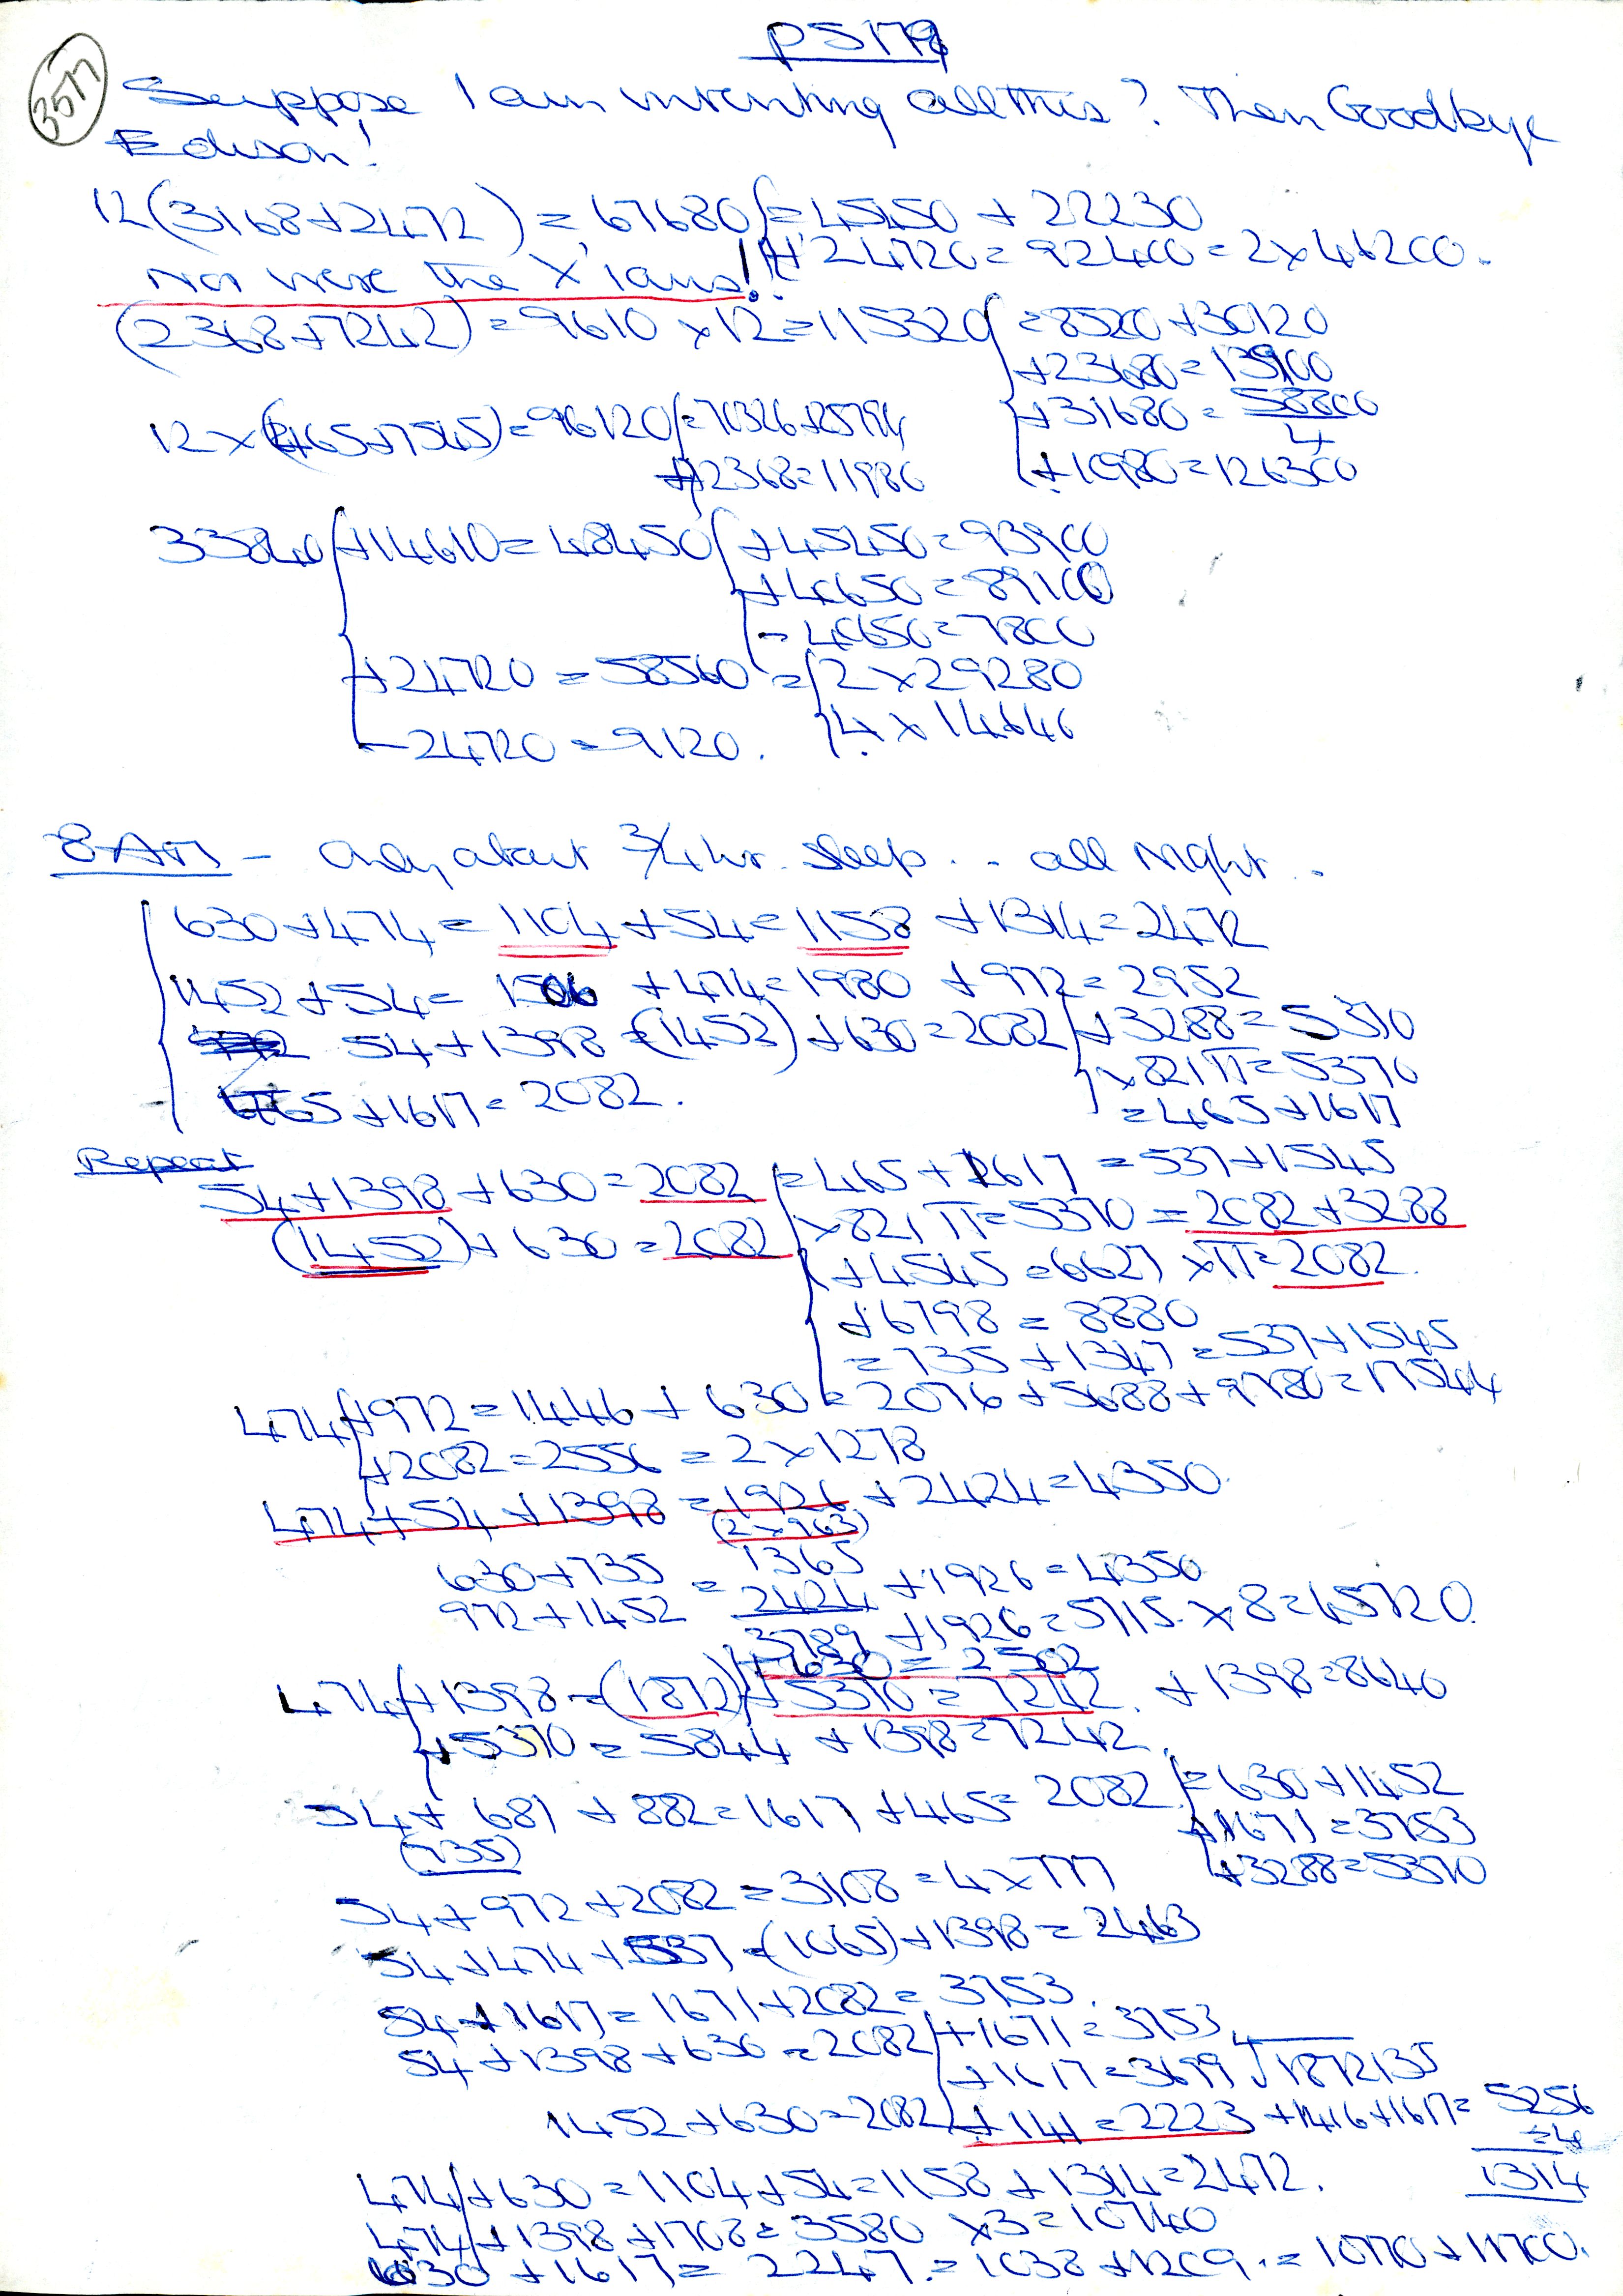 3577
Suppose I am inventing all this? Then Goodbye
Edison!
12(3168+2472) = 67680 = 45450 + 22230
+ 24720 = 92400 = 2x46200.
Nor were the X'ians!!
(2368+7242) = 9610 x 12 = 115320 = 8520+30120
+23680 = 139100
+31680 = 58800
4
+10980 = 126300
12 x (465+7545) = 96120 = 70326+25794
+2368 = 11986
33840 +14610 = 48450 +45450 = 93900
+40650 = 89100
- 40650 = 7800
+24720 = 58560 = 2x29280
4x14646
-24720 = 9120.
8 AM – Only about 3/4 hr. sleep .. all night ..
630+474 = 1104 +54 = 1158 +1314 = 2472
1452+54 = 1506 +474 = 1980 +972 = 2952
54+1398 = (1452) +630 = 2082 +3288 = 5370
x 821 π = 5370
465+1617 = 2082. = 465+1617
Repeat
54+1398 +630 = 2082 = 465+1617 = 537+1545
x 821 π = 5370 = 2082+3288
(1452)+630 = 2082
+4545 = 6627 x π = 2082.
+6798 = 8880
= 735+1347 = 537+1545
474 +972 = 1446 + 630 = 2076 +5688+9780 = 17544
+2082 = 2556 = 2x1278
474+54+1398 = 1926 +2424 = 4350.
(2x963)
630+735 = 1365
972+1452 2424 +1926 = 4350
3789 +1926 = 5715. x 8 = 45720.
+630 = 2502
474 +1398 = (1872) +5370 = 7242. +1398 = 8640
+5370 = 5844 +1398 = 7242.
54+ 681 +882 = 1617 +465 = 2082 = 630+1452
(735) +1671 = 3753
+3288 = 5370
54+972+2082 = 3108 = 4x777
54+474+537 = (1065)+1398 = 2463
54+1617 = 1671+2082 = 3753.
54+1398+630 = 2082 +1671 = 3753
+1617 = 3699 4√1872135
1452+630 = 2082 +141 = 2223 +1416+1617 = 5256
÷4
1314
474 +630 = 1104+54 = 1158 +1314 = 2472.
474 +1398+1708 = 3580 x3 = 10740
630 +1617 = 2247. = 1038+1209. = 10770+11700.